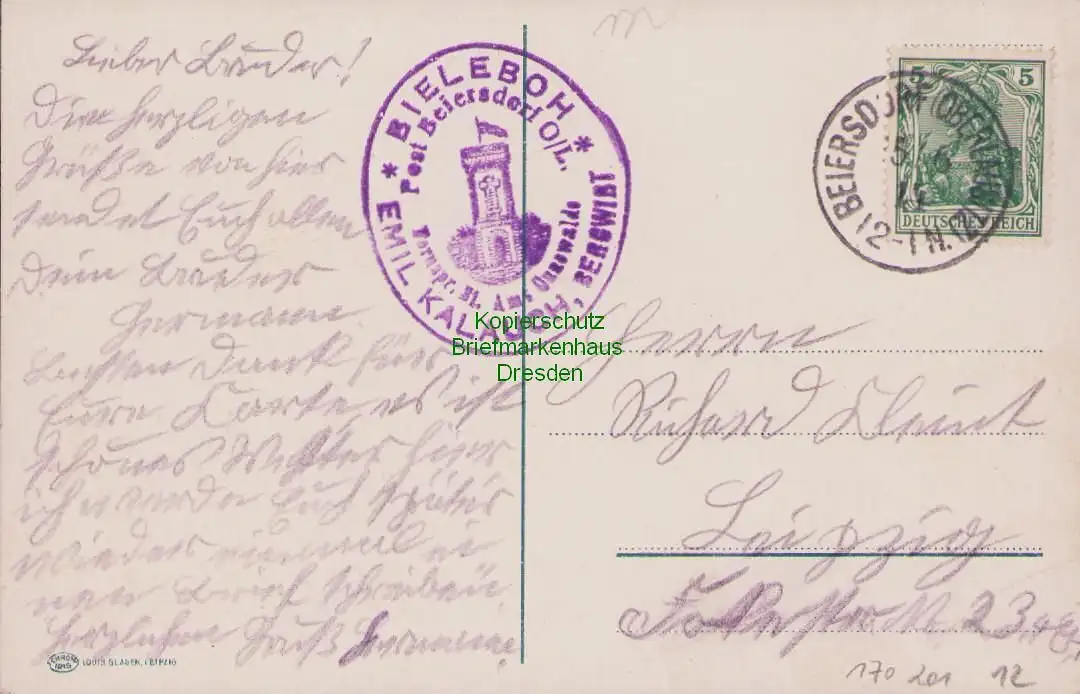 Lieber Bruder!
Die herzligen
Grüße von hier
sendet Euch allen
Dein Bruder
Hermann
Besten Dank für
Eure Karte, es ist
schönes Wetter hier
ich werde Euch später
wieder einmal ei
nen Brief schreiben
Herzlichen Gruß Hermann
* BIELEBOH *
Post Beiersdorf O/L.
Fernspr. St. Amt Cunewalde
EMIL KALAUCH, BERGWIRT
5 5
DEUTSCHES REICH
BEIERSDORF (OBERLAUSITZ)
12-1 N.
Kopierschutz
Briefmarkenhaus
Dresden
Herrn
Richard
Leipzig
23
LOUIS GLASER, LEIPZIG
170 201 12